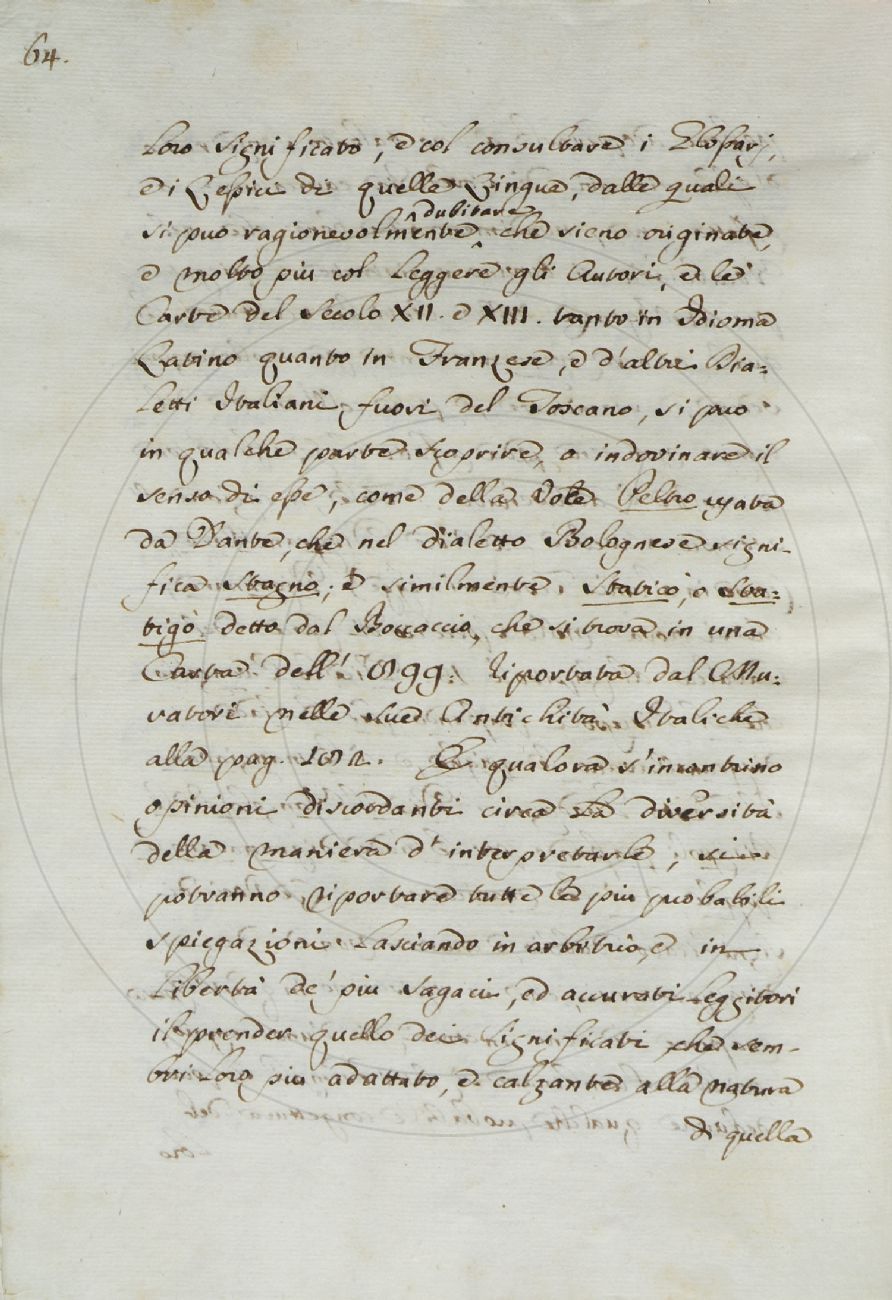 64.
loro significato, e col consultare i Glossarj,
e i Lessici di quelle Lingue, dalle quali
dubitare
si può ragionevolmente che sieno originate,
e molto più col leggere gli Autori, e le
Carte del Secolo XII. e XIII. tanto in Idioma
Latino quanto in Franzese, e d'altri Dia=
letti Italiani fuori del Toscano, si può
in qualche parte scoprire, o indovinare il
senso di esse, come della Voce Peltro usata
da Dante, che nel dialetto Bolognese signi-
fica Stagno; e similmente Statico, o Sta=
tigo detto dal Boccaccio, che si trova in una
Carta dell' 899: riportata dal Mu=
ratori nelle sue Antichità Italiche
alla pag. 182. E qualora s'incontrino
opinioni discordanti circa la diversità
della maniera d' interpretarle, si
potranno riportare tutte le più probabili
spiegazioni lasciando in arbitrio, e in
libertà de' più sagaci, ed accurati Leggitori
il prender quello dei significati che sem-
bri loro più adattato, e calzante alla natura
di quella